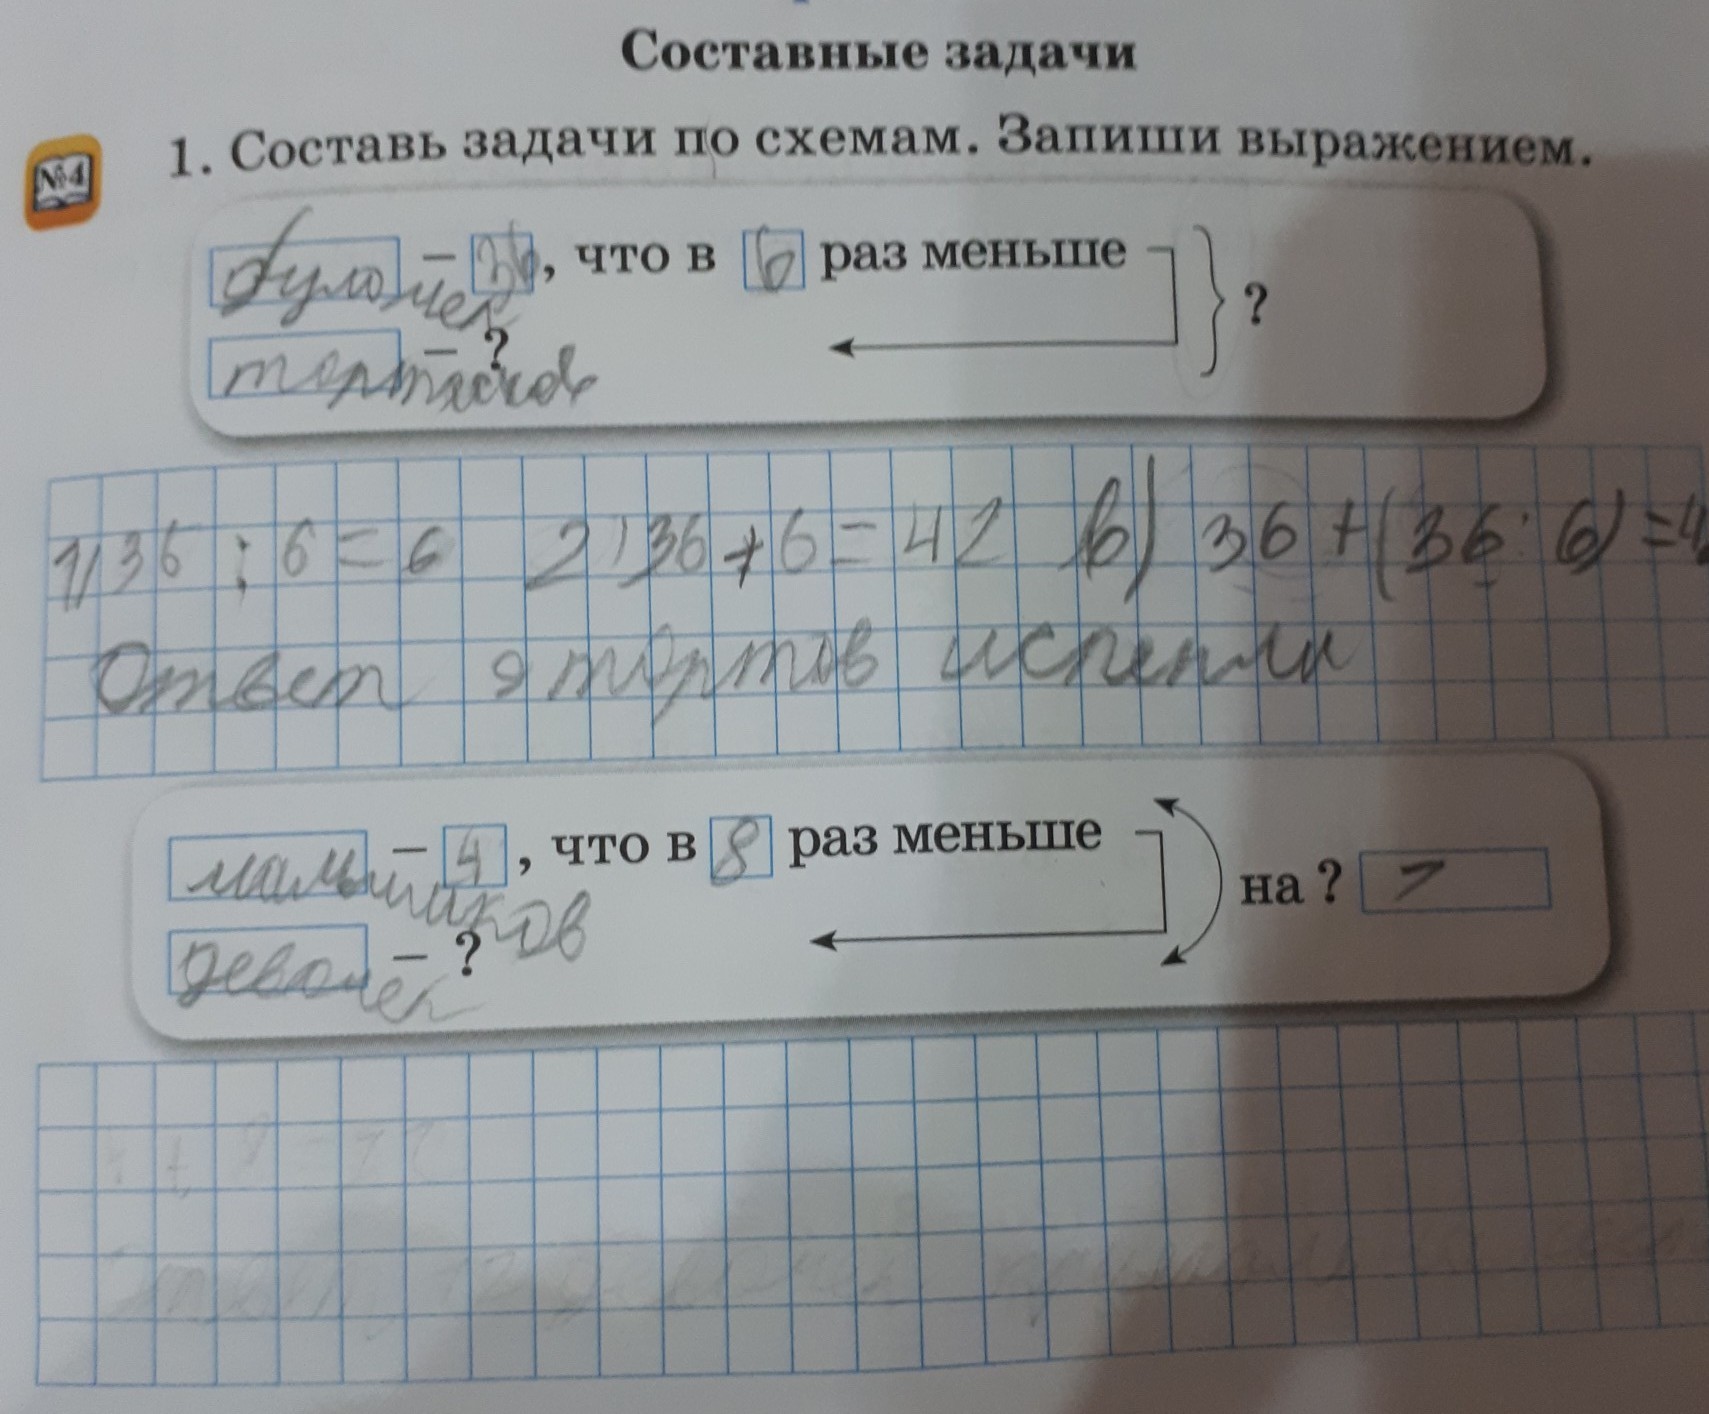 Составные задачи
№4 1. Составь задачи по схемам. Запиши выражением.
булочек – 36, что в 6 раз меньше
?
– ?
1) 36 : 6 = 6 2) 36 + 6 = 42 в) 36 + (36 : 6) = 4
Ответ тортов испекли
мальчиков – 4, что в 8 раз меньше
на ? >
девочек – ?